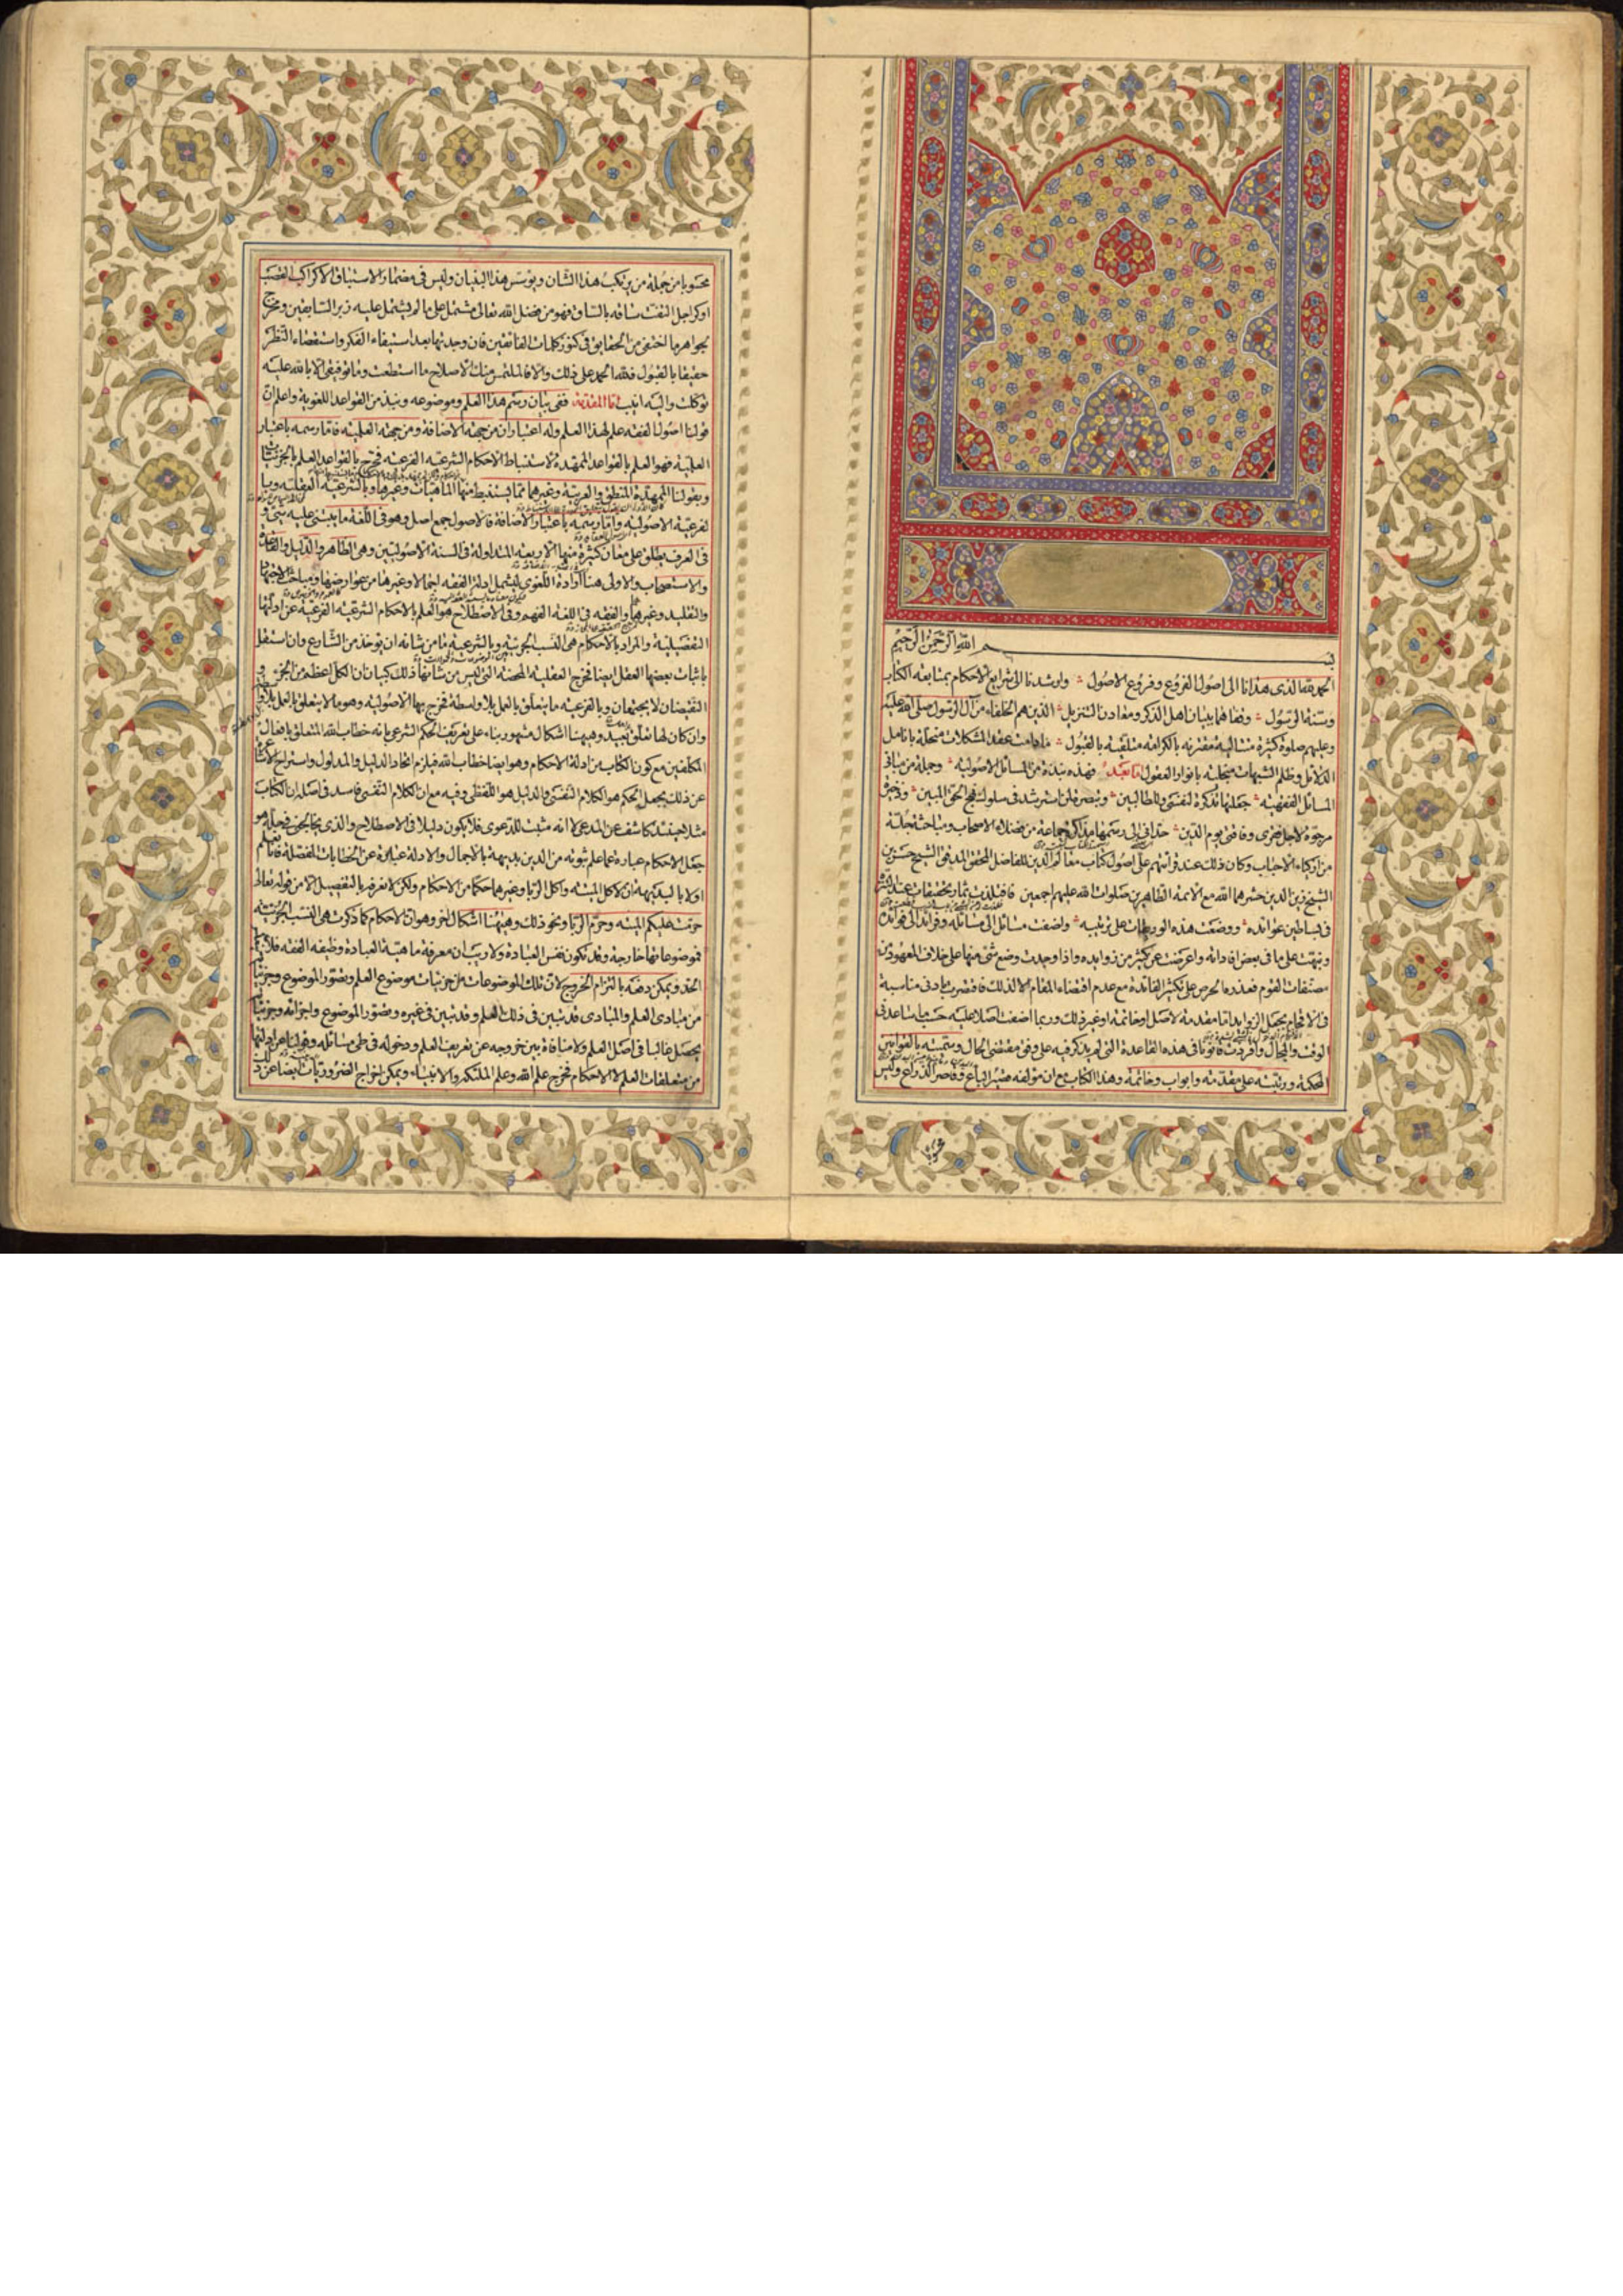 بسم الله الرحمن الرحيم
الحمد لله الذى هدانا الى اصول الفروع وفروع الاصول وارشدنا الى شرايع الاحكام بمتابعة الكتاب
وسنة الرسول وقفاهما ببيان اهل الذكر ومعادن التنزيل الذين هم الخلفاء من آل الرسول صلى الله عليه
وعليهم صلوة كثيرة متتالية مقترنه بالكرامة متلقية بالقبول مادامت عقد المشكلات منحلة بانامل
الدلائل وظلم الشبهات منجلية بانوار العقول اما بعد فهذه نبذة من المسائل الاصولية وجملة من مبانى
المسائل الفقهية جعلتها تذكرة لنفسى وللطالبين وتبصرة لمن استرشد فى سلوك نهج الحق المبين وذخيرة
مرجوة لاجل فقرى وفاقتى يوم الدين حدانى الى رسمها مذاكرة جماعة من فضلاء الاصحاب ومباحثة جملة
من ازكياء الاحباب وكان ذلك عند قرائتهم على اصول كتاب معالم الدين للفاضل المحقق المدقق الشيخ حسن بن
الشيخ زين الدين حشرهما الله مع الائمة الطاهرين صلوات الله عليهم اجمعين
فى بساطين عوائده ووضعت هذه الوريقات على ترتيبه واضفت مسائل الى مسائله وفوائد الى فوائده
ونبهت على ما فى بعض افاداته واعرضت عن كثير من زوايده واذا وجدت وضع شئ منها على خلاف المعهود من
مصنفات القوم فعذره الحرص على تكثير الفائدة مع عدم اقتضاء المقام الا لذلك فاقتصرت بادنى مناسبة
فى الاقحام بجعل الزوايد اما مقدمة لاصل او خاتمة او غير ذلك وربما اضفت اصلا عليه حسب ما ساعدنى
الوقت والمجال وافردت قانونا فى هذه القاعدة التى لم يذكر فيه على وفق مقتضى الحال وسميته بالقوانين
المحكمة ورتبته على مقدمة وابواب وخاتمة وهذا الكتاب مع ان مؤلفه قصير الباع وقاصر الذراع وليس
محسوبا من جملة من يرتكب هذا الشان ويؤسس هذا البنيان وليس فى مضمار الاستباق الا كراكب القصب
او كراجل التفت ساقه بالساق فهو من فضل الله تعالى مشتمل على ما لم يشتمل عليه زبر السابقين ومخرج
لجواهر ما اختفى من الحقايق فى كنوز كلمات الفائقين فان وجدتها بعد استيفاء الفكر واستقصاء النظر
حقيقا بالقبول فلله الحمد على ذلك والا فالملتمس منك الاصلاح ما استطعت وما توفيقى الا بالله عليه
توكلت واليه انيب اما المقدمة ففى بيان رسم هذا العلم وموضوعه ونبذ من القواعد اللغوية واعلم ان
قولنا اصول الفقه علم لهذا العلم وله اعتباران من جهة الاضافة ومن جهة العلمية فاما رسمه باعتبار
العلمية فهو العلم بالقواعد الممهدة لاستنباط الاحكام الشرعية الفرعية فخرج بالقواعد العلم بالجزئيات
وبقولنا الممهدة المنطق والعربية وغيرهما مما يستنبط منها الماهيات وغيرها وبالشرعية العقلية وبا
لفرعية الاصولية واما رسمه باعتبار الاضافة فالاصول جمع اصل وهو فى اللغة ما يبتنى عليه شئ و
فى العرف يطلق على معان كثيرة منها الاربعة المتداولة فى السنة الاصوليين وهى الظاهر والدليل والقاعدة
والاستصحاب والاولى هنا ارادة اللغوى ليشمل ادلة الفقه اجمالا وغيرها من عوارضها ومباحث الاجتهاد
والتقليد وغيرهما والفقه فى اللغة الفهم وفى الاصطلاح هو العلم بالاحكام الشرعية الفرعية عن ادلتها
التفصيلية والمراد بالاحكام هى النسب الجزئية وبالشرعية ما من شانه ان يؤخذ من الشارع وان استقل
باثبات بعضها العقل ايضا فخرج العقلية المحضة التى ليس من شانها ذلك كبيان ان الكل اعظم من الجزء و
النقيضان لا يجتمعان وبالفرعية ما يتعلق بالعمل بلا واسطة فخرج بها الاصولية وهو ما لا يتعلق بالعمل بلا
وان كان لها تعلق بعيد وههنا اشكال مشهور بناء على تعريف الحكم الشرعى بانه خطاب الله المتعلق بافعال
المكلفين مع كون الكتاب من ادلة الاحكام وهو ايضا خطاب الله فيلزم اتحاد الدليل والمدلول واستراح الاشاعرة
عن ذلك بجعل الحكم هو الكلام النفسى والدليل هو اللفظى وفيه مع ان الكلام النفسى فاسد فى اصله ان الكتاب
مثلا حينئذ كاشف عن المدعى لا انه مثبت للدعوى فلا يكون دليلا فى الاصطلاح والذى يخالجنى فى حله هو
جعل الاحكام عبارة عما علم ثبوته من الدين بديهة بالاجمال والادلة عبارة عن الخطابات المفصلة فانا نعلم
اولا بالبديهة ان لاكل الميتة واكل الربا وغيرهما حكما من الاحكام ولكن لا نعرفه بالتفصيل الا من قوله تعالى
حرمت عليكم الميتة وحرم الربا ونحو ذلك وههنا اشكال اخر وهو ان الاحكام كما ذكرت هى النسب الجزئية
فموضوعاتها خارجة وقد تكون نفس العبادة ولا ريب ان معرفة ماهية العبادة وظيفة الفقه فلا ينعكس
الحد ويمكن دفعه بالتزام الخروج لان تلك الموضوعات من جزئيات موضوع العلم وتصور الموضوع وجزئياته
من مبادى العلم والمبادى قد تبين فى ذلك العلم وقد تبين فى غيره وتصور الموضوع واجزائه وجزئياته
يحصل غالبا فى اصل العلم ولا منافاة بين خروجه عن تعريف العلم ودخوله فى طى مسائله وقولنا عن ادلتها
من متعلقات العلم لا الاحكام فخرج علم الله وعلم الملائكة والانبياء ويمكن اخراج الضروريات ايضا عن ذلك